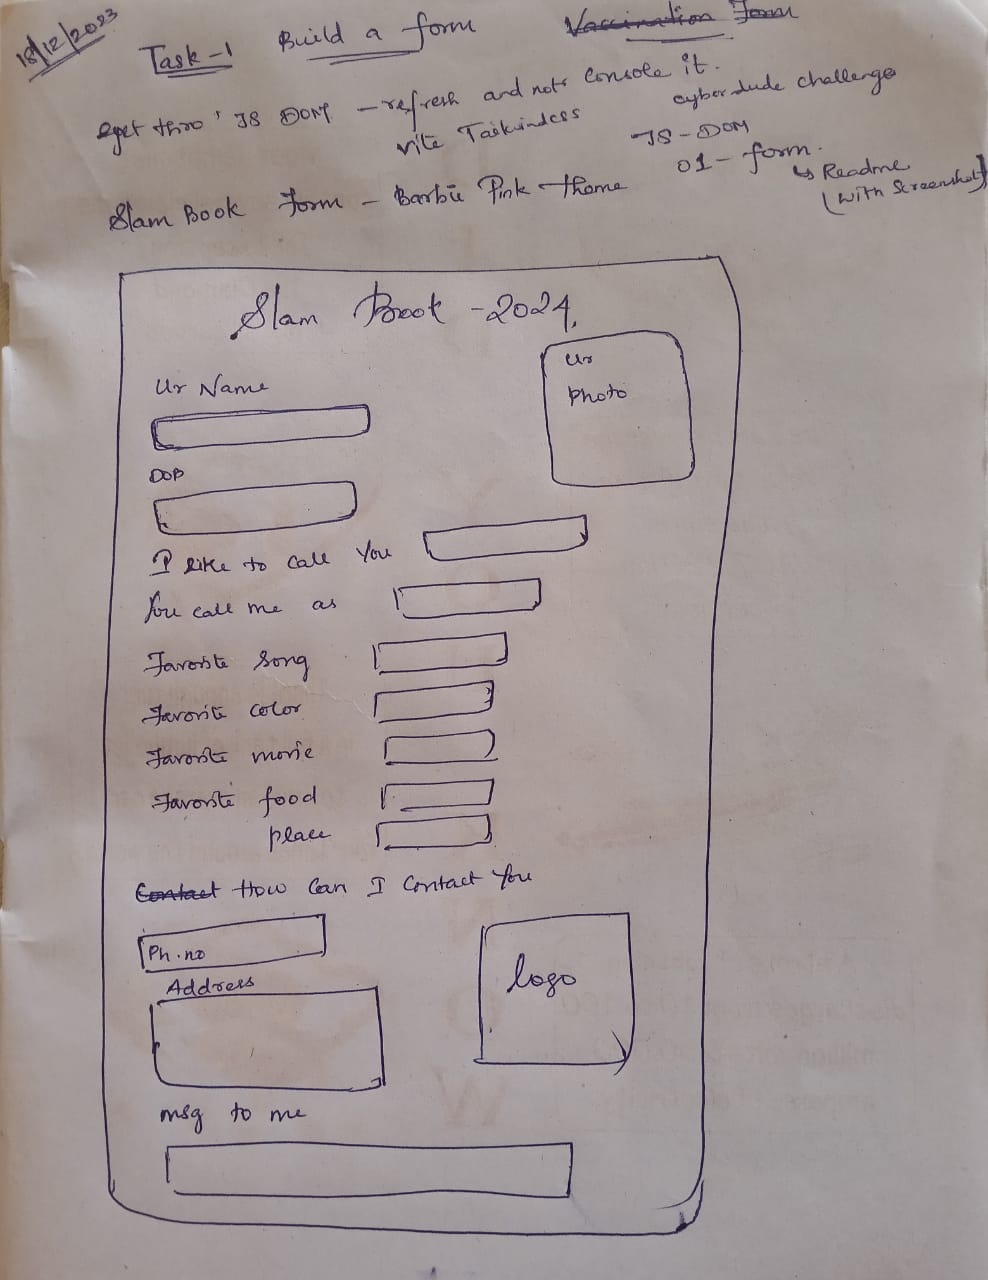 18/12/2023
Task-1 Build a form Vaccination Form
get thro' JS DOM - refresh and not console it.
vite Tailwindcss
cyberdude challenge
JS-DOM
01- form.
↳ Readme
(with Screenshot)
Slam Book Form - Barbie Pink theme
Slam Book - 2024.
Ur Name
Ur
photo
DOB
I like to call You
You call me as
Favorite Song
Favorite color
Favorite movie
Favorite food
place
Contact How Can I Contact You
Ph.no
logo
Address
msg to me